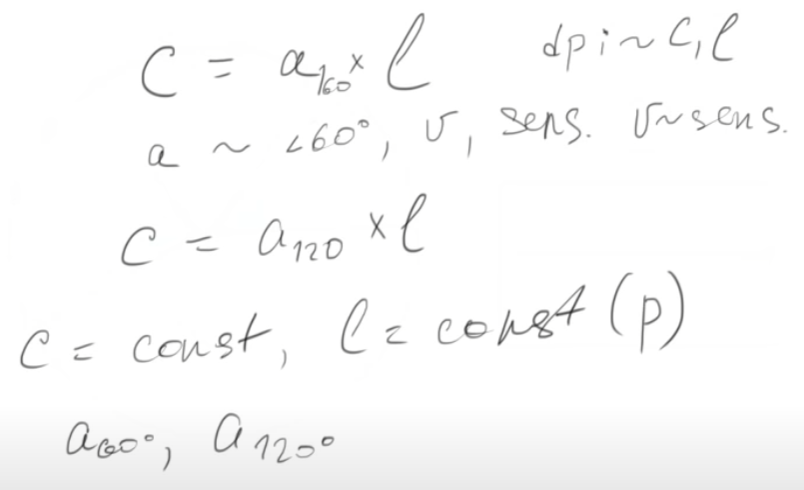 C = a₁₆₀ × l dpi ~ C, l
a ~ <60°, v, sens. v~sens.
C = a₁₂₀ × l
C = const, l = const (p)
a₆₀°, a₁₂₀°